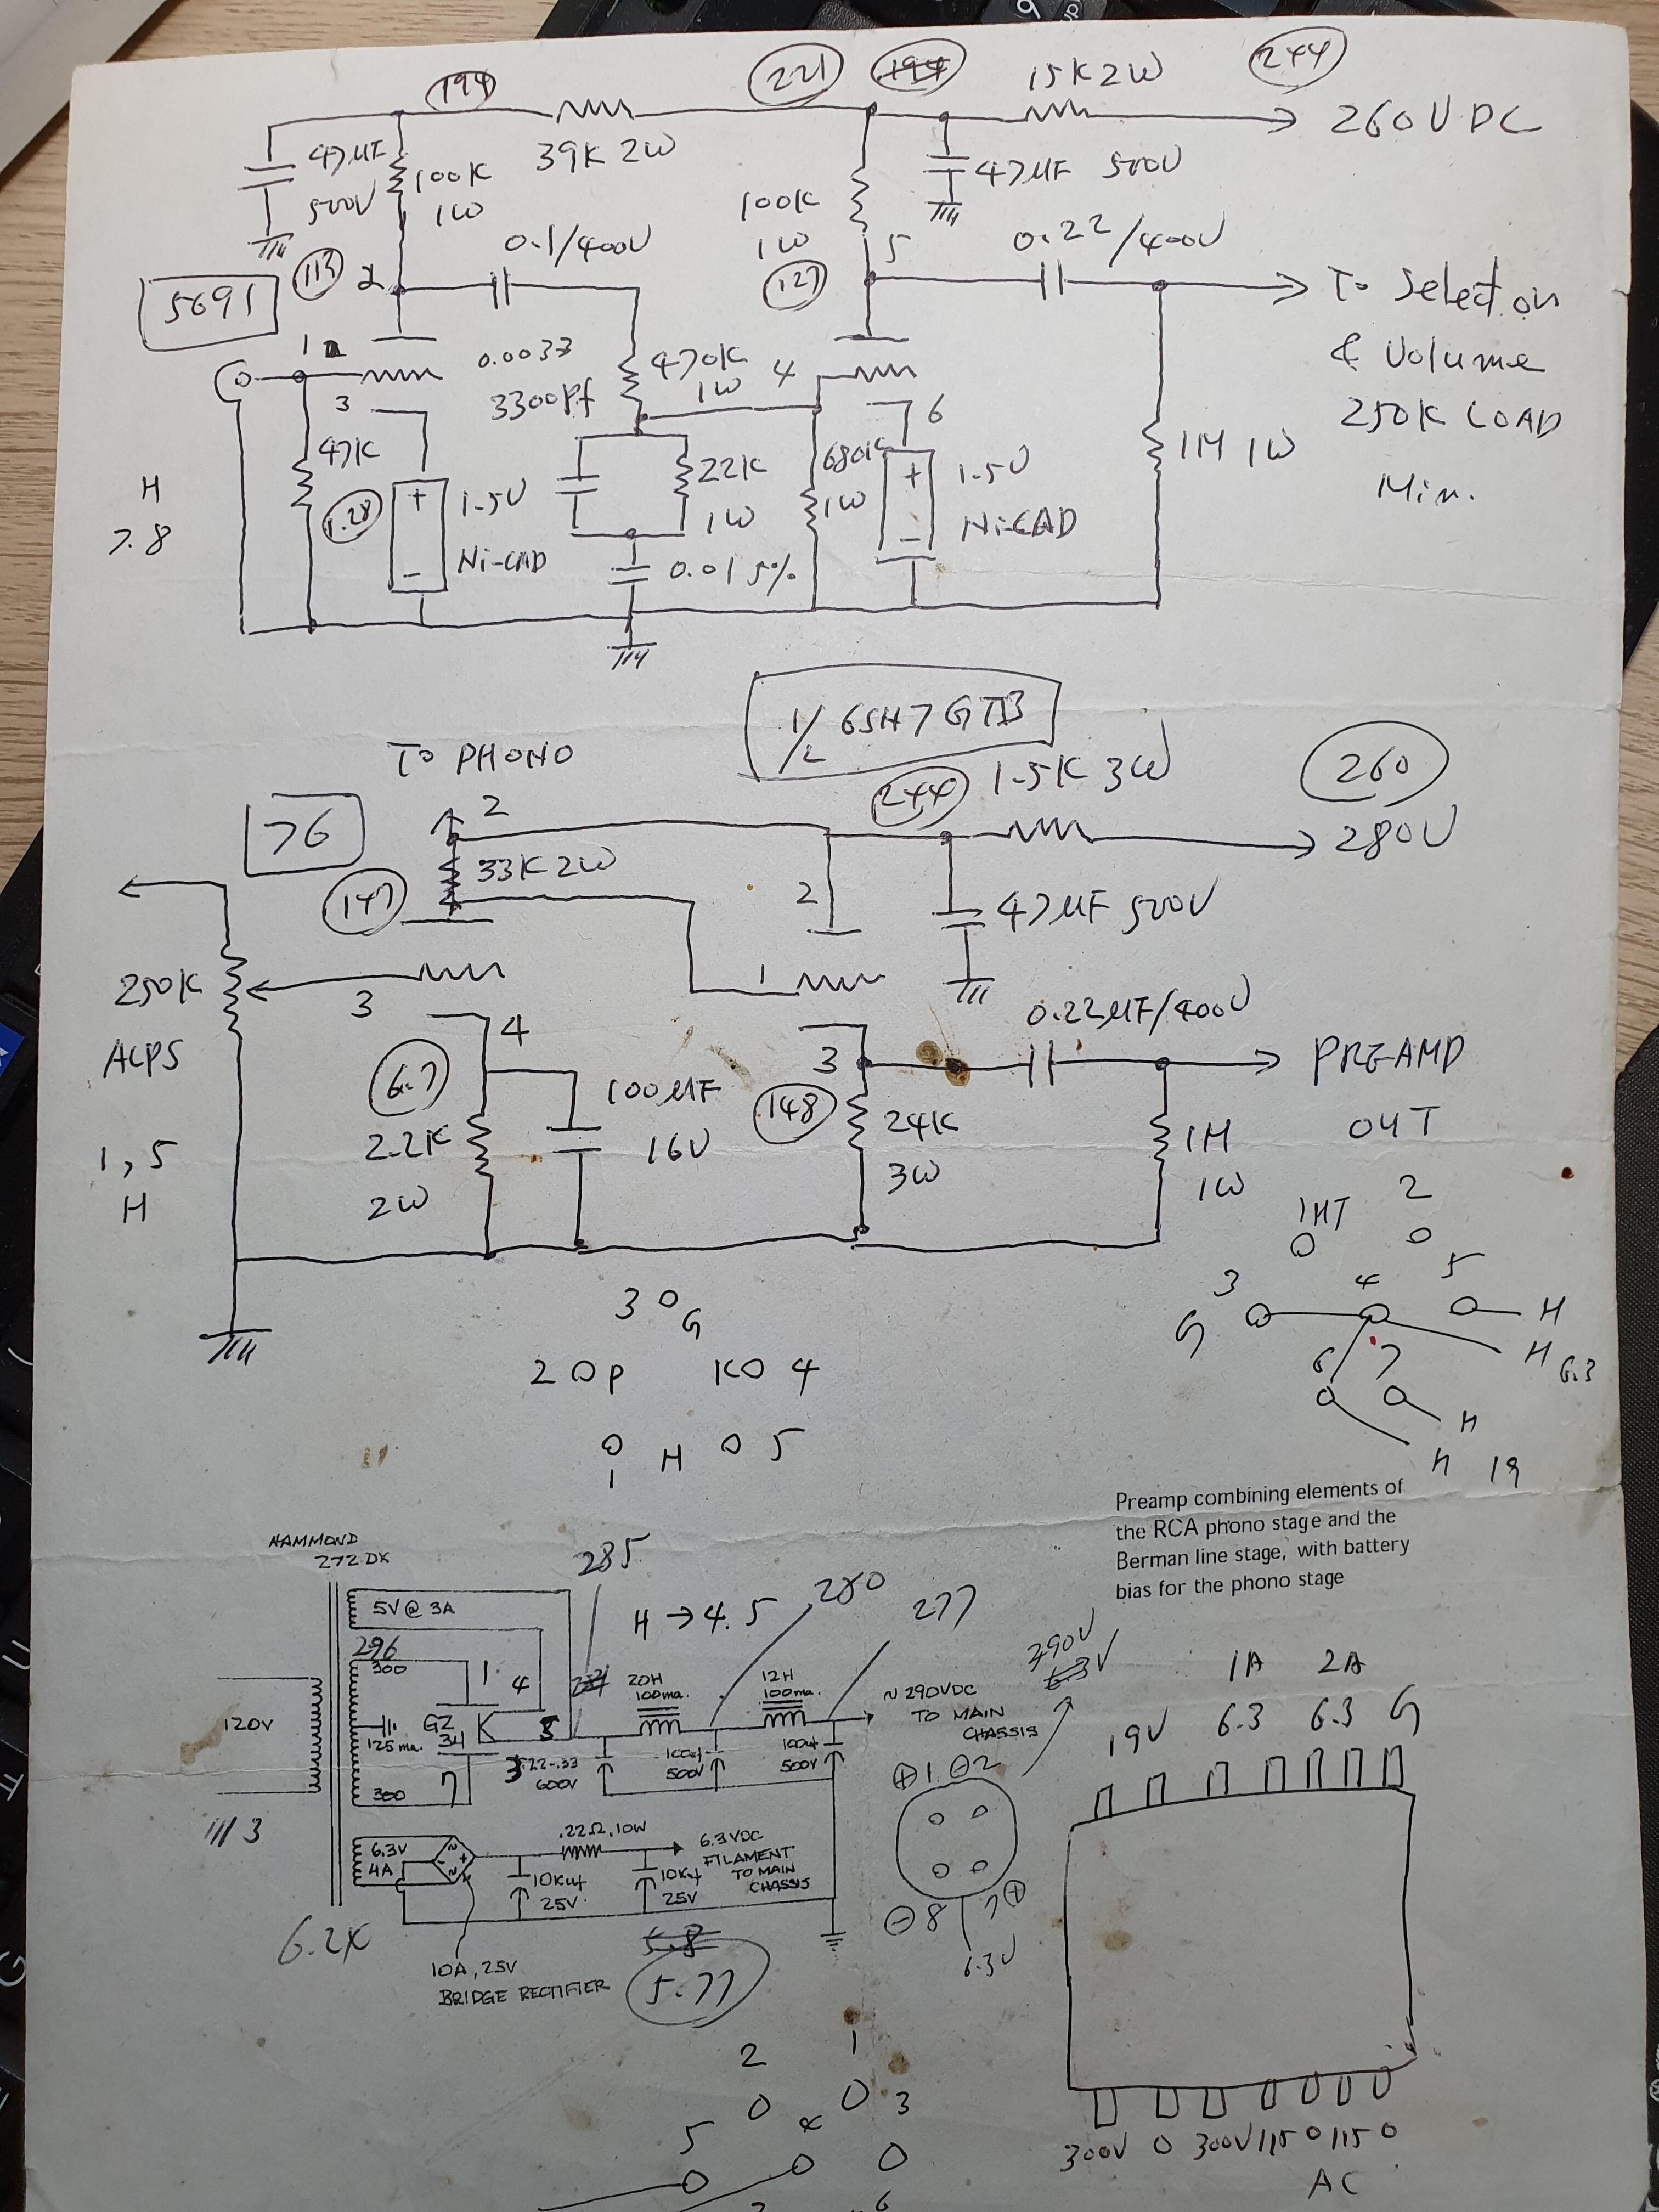 194
221
194
15K 2W
244
260V DC
39K 2W
47µF
500V
100K
1W
47µF 500V
100K
1W
0.1/400V
5
0.22/400V
113
2
127
To Selection
& Volume
250K LOAD
Min.
5691
1
0.0033
3300Pf
470K
1W
4
3
6
47K
680K
1W
1M 1W
H
7.8
1.28
+
1.5V
Ni-CAD
-
22K
1W
+
1.5V
Ni-CAD
-
0.01 5%
1/2 6SH7 GTB
TO PHONO
1.5K 3W
260
244
280V
76
2
33K 2W
147
2
47µF 500V
250K
3
1
0.22µF/400V
ALPS
4
3
PREAMP
OUT
6.7
100µF
16V
148
2.2K
2W
24K
3W
1M
1W
1,5
H
1HT
2
3
4
5
H
G
H 6.3
6
7
H
H 19
3
G
2 P K 4
1 H 5
Preamp combining elements of
the RCA phono stage and the
Berman line stage, with battery
bias for the phono stage
HAMMOND
272DX
285
280
277
H → 4.5
5V@3A
296
300
1
4
20H
100ma.
12H
100ma.
~290VDC
TO MAIN
CHASSIS
290V
6.3V
120V
GZ
34
K
5
125ma.
3
.22-.33
600V
100uf
500V
100uf
500V
7
300
113
1A
2A
19V
6.3
6.3
G
+ 1 - 2
6.3V
4A
.22Ω, 10W
6.3VDC
FILAMENT
TO MAIN
CHASSIS
10Kuf
25V
10Kuf
25V
- 8
7 +
6.3V
6.2X
5.8
5.77
10A, 25V
BRIDGE RECTIFIER
300V 0 300V 115 0 115 0
AC
2
1
3
5
4
6